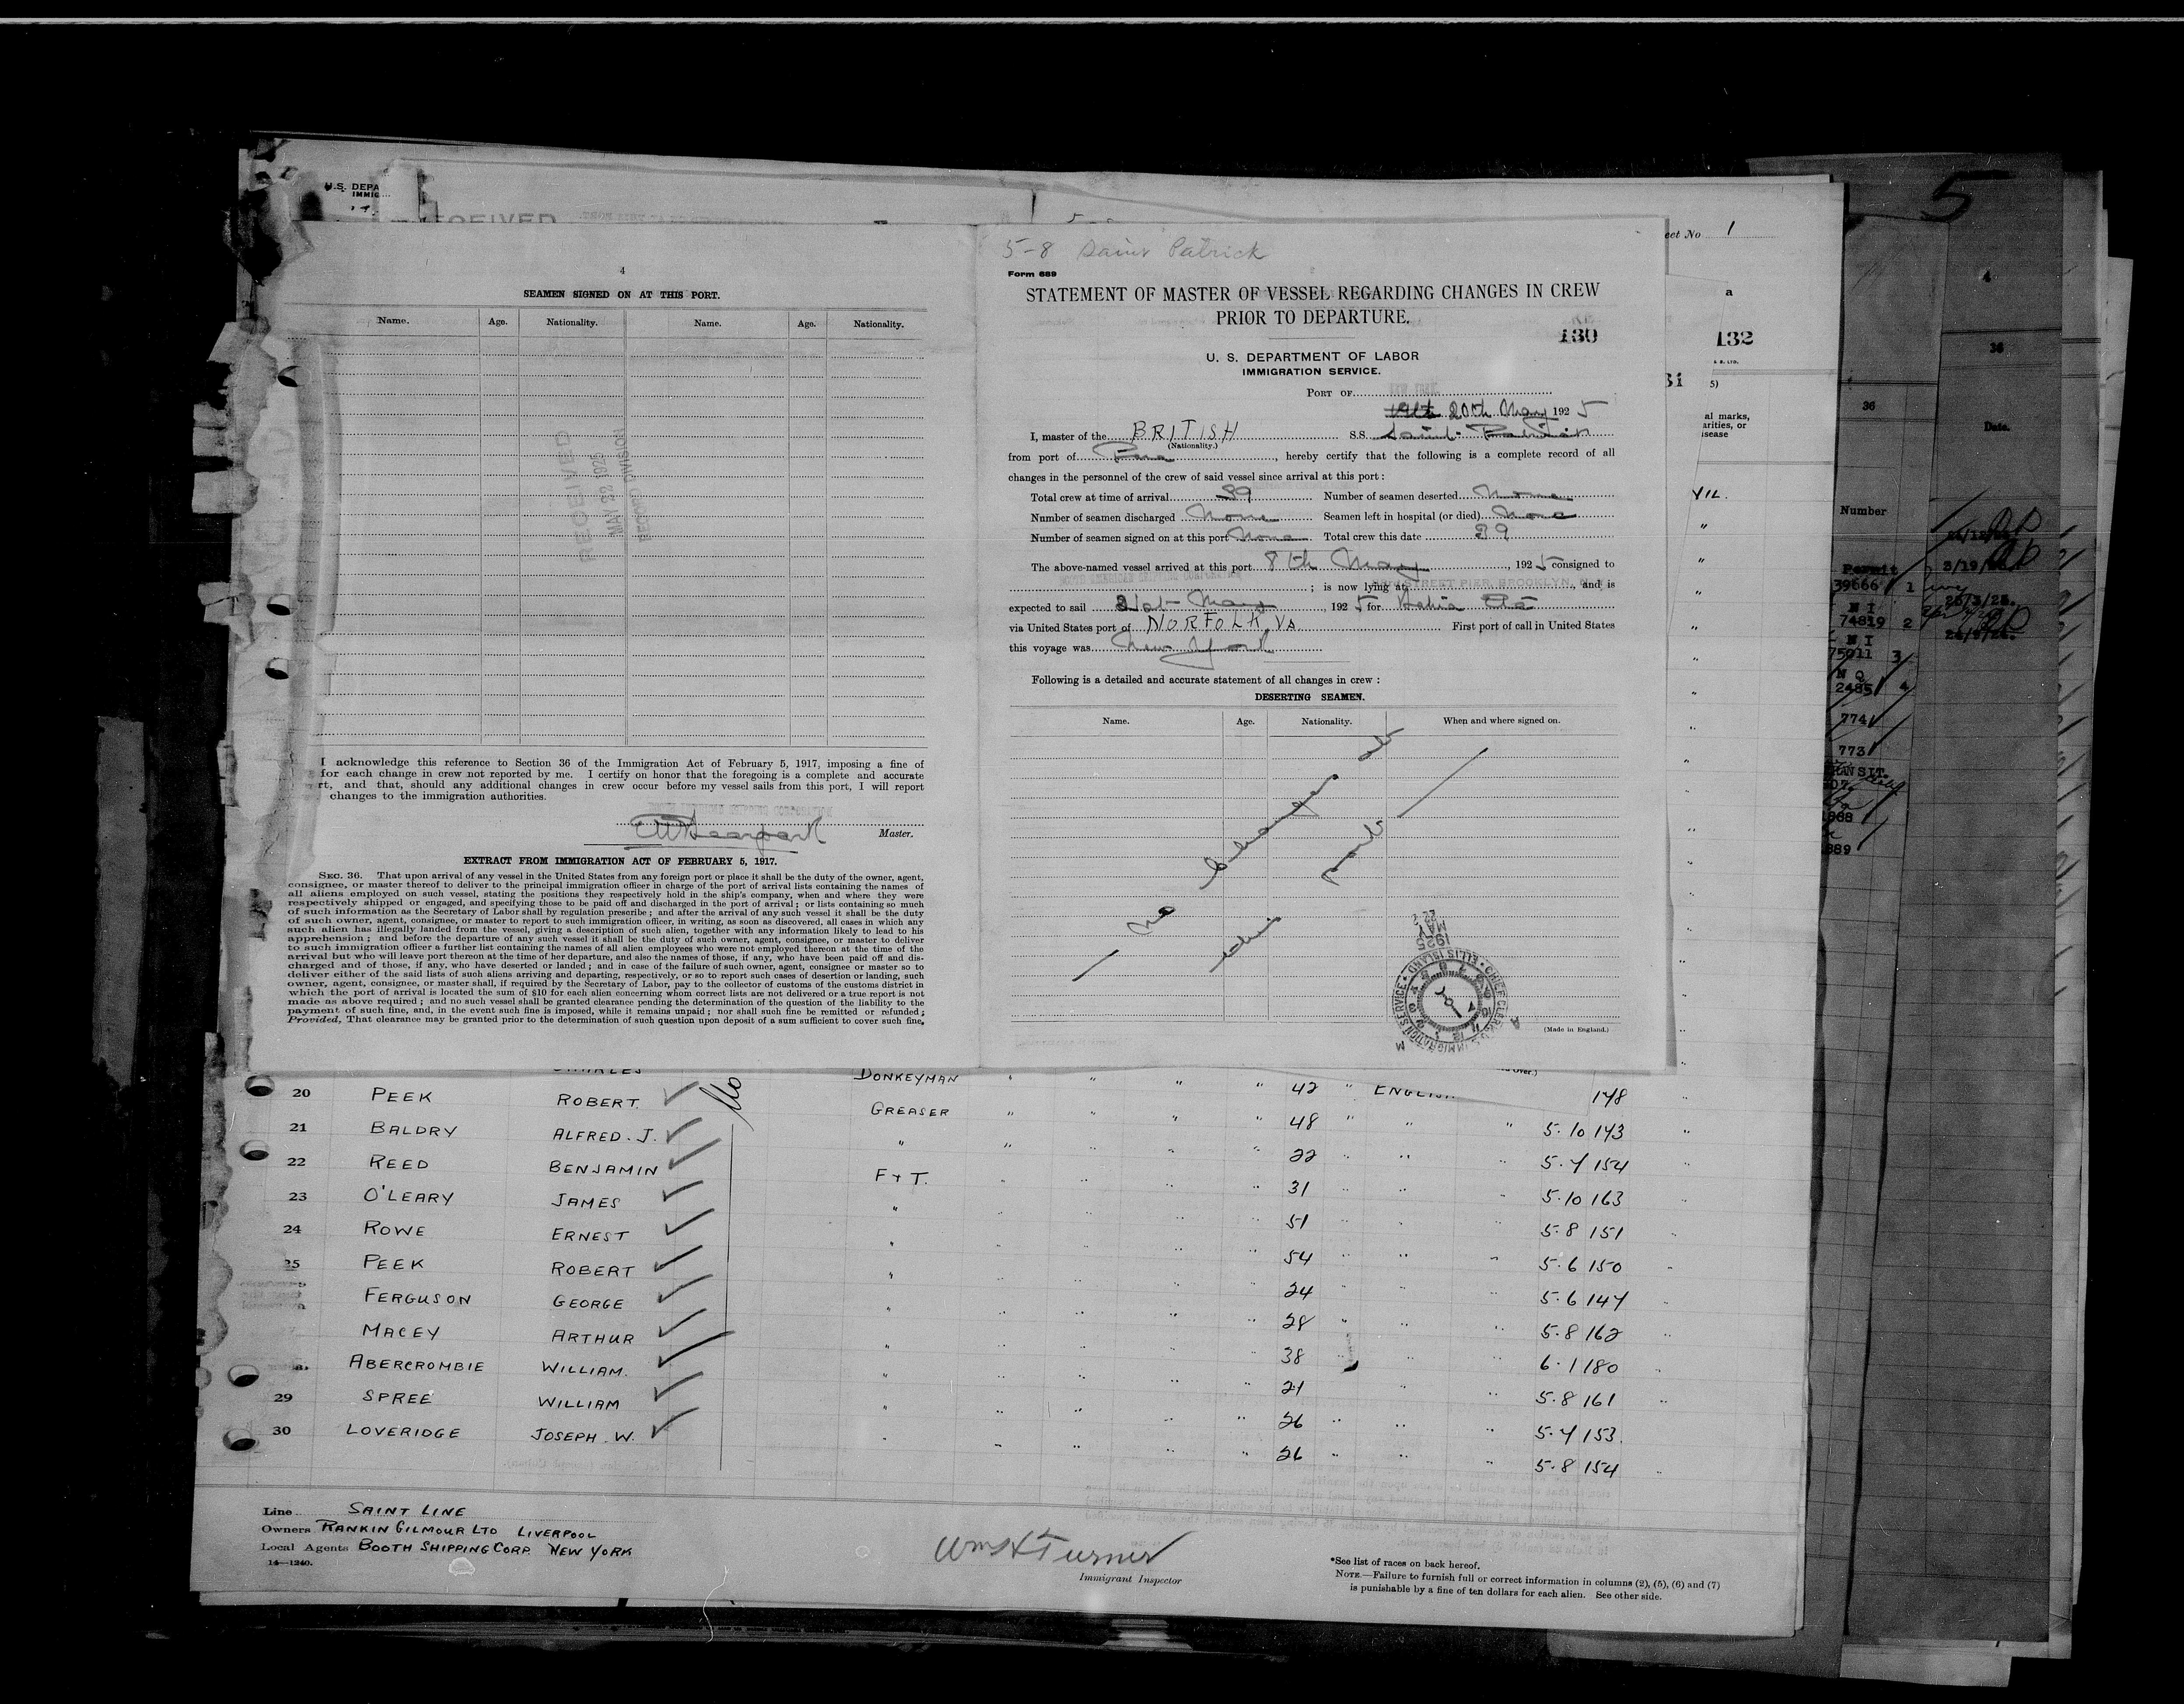 5
U.S. DEPA
IMMIG
RECEIVED
eet No 1
4
SEAMEN SIGNED ON AT THIS PORT.
Name. Age. Nationality. Name. Age. Nationality.
RECEIVED
MAY 22 1925
RECORD DIVISION
I acknowledge this reference to Section 36 of the Immigration Act of February 5, 1917, imposing a fine of
for each change in crew not reported by me. I certify on honor that the foregoing is a complete and accurate
rt, and that, should any additional changes in crew occur before my vessel sails from this port, I will report
changes to the immigration authorities.
Master.
EXTRACT FROM IMMIGRATION ACT OF FEBRUARY 5, 1917.
SEC. 36. That upon arrival of any vessel in the United States from any foreign port or place it shall be the duty of the owner, agent,
consignee, or master thereof to deliver to the principal immigration officer in charge of the port of arrival lists containing the names of
all aliens employed on such vessel, stating the positions they respectively hold in the ship's company, when and where they were
respectively shipped or engaged, and specifying those to be paid off and discharged in the port of arrival; or lists containing so much
of such information as the Secretary of Labor shall by regulation prescribe; and after the arrival of any such vessel it shall be the duty
of such owner, agent, consignee, or master to report to such immigration officer, in writing, as soon as discovered, all cases in which any
such alien has illegally landed from the vessel, giving a description of such alien, together with any information likely to lead to his
apprehension; and before the departure of any such vessel it shall be the duty of such owner, agent, consignee, or master to deliver
to such immigration officer a further list containing the names of all alien employees who were not employed thereon at the time of the
arrival but who will leave port thereon at the time of her departure, and also the names of those, if any, who have been paid off and dis-
charged and of those, if any, who have deserted or landed; and in case of the failure of such owner, agent, consignee or master so to
deliver either of the said lists of such aliens arriving and departing, respectively, or so to report such cases of desertion or landing, such
owner, agent, consignee, or master shall, if required by the Secretary of Labor, pay to the collector of customs of the customs district in
which the port of arrival is located the sum of $10 for each alien concerning whom correct lists are not delivered or a true report is not
made as above required; and no such vessel shall be granted clearance pending the determination of the question of the liability to the
payment of such fine, and, in the event such fine is imposed, while it remains unpaid; nor shall such fine be remitted or refunded;
Provided, That clearance may be granted prior to the determination of such question upon deposit of a sum sufficient to cover such fine.
5-8 Saint Patrick
Form 689
STATEMENT OF MASTER OF VESSEL REGARDING CHANGES IN CREW
PRIOR TO DEPARTURE.
130
U. S. DEPARTMENT OF LABOR
IMMIGRATION SERVICE.
PORT OF NEW YORK
19th 20th May 1925
I, master of the BRITISH S.S. Saint Patrick
(Nationality.)
from port of Para, hereby certify that the following is a complete record of all
changes in the personnel of the crew of said vessel since arrival at this port:
Total crew at time of arrival 39 Number of seamen deserted None
Number of seamen discharged None Seamen left in hospital (or died) None
Number of seamen signed on at this port None Total crew this date 39
The above-named vessel arrived at this port 8th May, 1925 consigned to
; is now lying at STREET PIER, BROOKLYN, and is
expected to sail 21st May, 1925 for Bahia
via United States port of NORFOLK, VA First port of call in United States
this voyage was New York
Following is a detailed and accurate statement of all changes in crew:
DESERTING SEAMEN.
Name. Age. Nationality. When and where signed on.
No changes at
this port
MAY 22 1925
CHIEF CLERK U.S. IMMIGRATION SERVICE ELLIS ISLAND
(Made in England.)
a
132
31
5)
al marks,
arities, or
isease
4
36
36
Date.
Number
Permit
39666 1
N I
74819 2
N I
75011 3
N Q
2485 4
774
773
TRANSIT.
889
DONKEYMAN 42 ENGLISH 148
20 PEEK ROBERT. GREASER " " " " 48 " " " 5.10 143
21 BALDRY ALFRED. J. " " " " " 22 " " " 5.4 154
22 REED BENJAMIN F & T. " " " " 31 " " " 5.10 163
23 O'LEARY JAMES " " " " " 51 " " " 5.8 151
24 ROWE ERNEST " " " " " 54 " " " 5.6 150
25 PEEK ROBERT " " " " " 24 " " " 5.6 147
FERGUSON GEORGE " " " " " 28 " " " 5.8 162
MACEY ARTHUR " " " " " 38 " " " 6.1 180
ABERCROMBIE WILLIAM. " " " " " 21 " " " 5.8 161
29 SPREE WILLIAM " " " " " 26 " " " 5.4 153.
30 LOVERIDGE JOSEPH. W. " " " " " 26 " " " 5.8 154
Line SAINT LINE
Owners RANKIN GILMOUR LTD LIVERPOOL
Local Agents BOOTH SHIPPING CORP. NEW YORK
14—1240.
Wm H Turner
Immigrant Inspector
*See list of races on back hereof.
NOTE.—Failure to furnish full or correct information in columns (2), (5), (6) and (7)
is punishable by a fine of ten dollars for each alien. See other side.